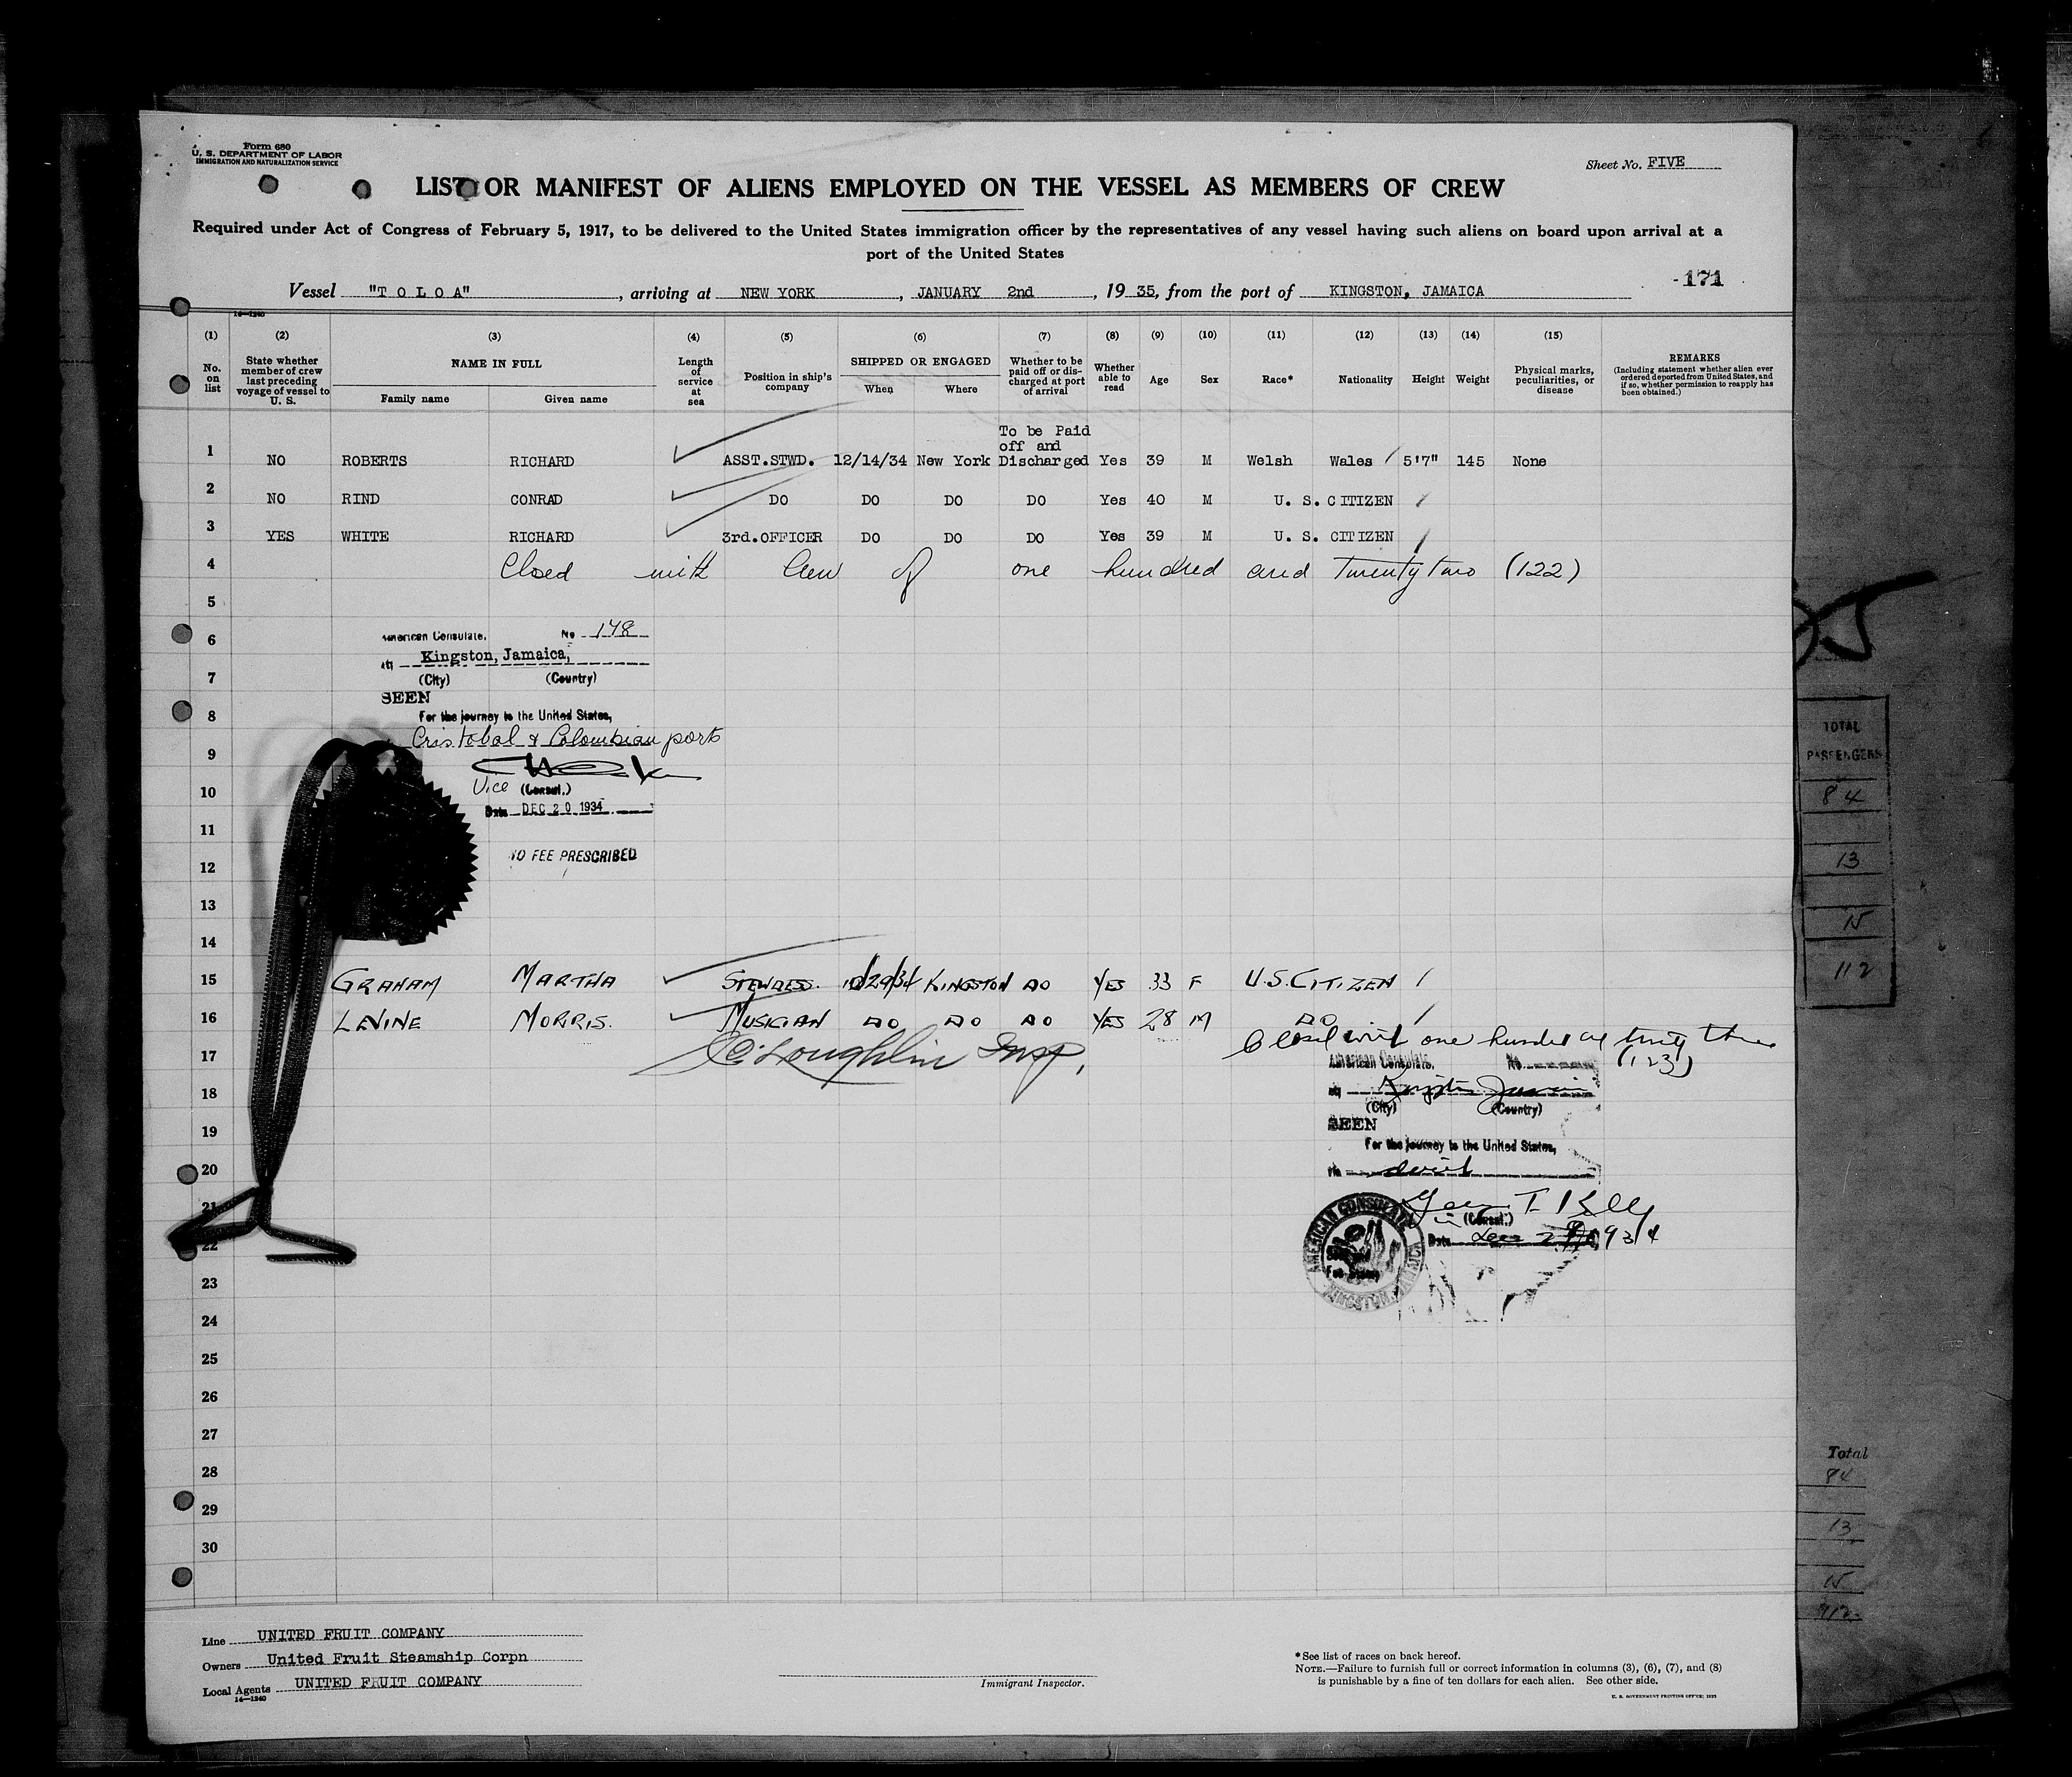 Form 680
U. S. DEPARTMENT OF LABOR
IMMIGRATION AND NATURALIZATION SERVICE
Sheet No. FIVE
LIST OR MANIFEST OF ALIENS EMPLOYED ON THE VESSEL AS MEMBERS OF CREW
Required under Act of Congress of February 5, 1917, to be delivered to the United States immigration officer by the representatives of any vessel having such aliens on board upon arrival at a
port of the United States
-171
Vessel "T O L O A", arriving at NEW YORK, JANUARY 2nd, 19 35, from the port of KINGSTON, JAMAICA
14—1240
(1) (2) (3) (4) (5) (6) (7) (8) (9) (10) (11) (12) (13) (14) (15)
No. on list
State whether member of crew last preceding voyage of vessel to U. S.
NAME IN FULL
Family name Given name
Length of service at sea
Position in ship's company
SHIPPED OR ENGAGED
When Where
Whether to be paid off or discharged at port of arrival
Whether able to read
Age Sex Race* Nationality Height Weight
Physical marks, peculiarities, or disease
REMARKS
(Including statement whether alien ever ordered deported from United States, and if so, whether permission to reapply has been obtained.)
To be Paid
off and
1 NO ROBERTS RICHARD ASST.STWD. 12/14/34 New York Discharged Yes 39 M Welsh Wales 5'7" 145 None
2 NO RIND CONRAD DO DO DO DO Yes 40 M U. S. CITIZEN
3 YES WHITE RICHARD 3rd.OFFICER DO DO DO Yes 39 M U. S. CITIZEN
4 Closed with Crew of one hundred and Twenty two (122)
5
6 American Consulate, No 148
at Kingston, Jamaica,
7 (City) (Country)
SEEN
8 For the journey to the United States,
Cristobal & Colombian ports
9
10 Vice (Consul.)
Date DEC 20 1934
11
12 NO FEE PRESCRIBED
13
14
15 GRAHAM MARTHA STEWDESS. 12/29/34 KINGSTON DO YES 33 F U.S. CITIZEN
16 LEVINE MORRIS. MUSICIAN DO DO DO YES 28 M DO
Closed with one hundred
17 O'Loughlin Insp.
(123)
American Consulate, No
at Kingston Jamaica
18 (City) (Country)
19 SEEN
For the journey to the United States,
20 via direct
21
(Consul.)
22 Date Dec 1934
AMERICAN CONSULATE
KINGSTON, JAMAICA
23
24
25
26
27
28
29
30
Line UNITED FRUIT COMPANY
Owners United Fruit Steamship Corpn
Local Agents UNITED FRUIT COMPANY
14—1240
Immigrant Inspector.
*See list of races on back hereof.
NOTE.—Failure to furnish full or correct information in columns (3), (6), (7), and (8)
is punishable by a fine of ten dollars for each alien. See other side.
U. S. GOVERNMENT PRINTING OFFICE: 1933
TOTAL
PASSENGERS
84
13
15
112
Total
84
13
15
112